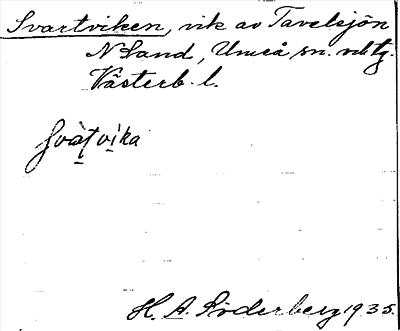 Svartviken, vik av Tavelsjön
N Sand, Umeå sn.
Västerb. l.
H. A. Söderberg 1935.